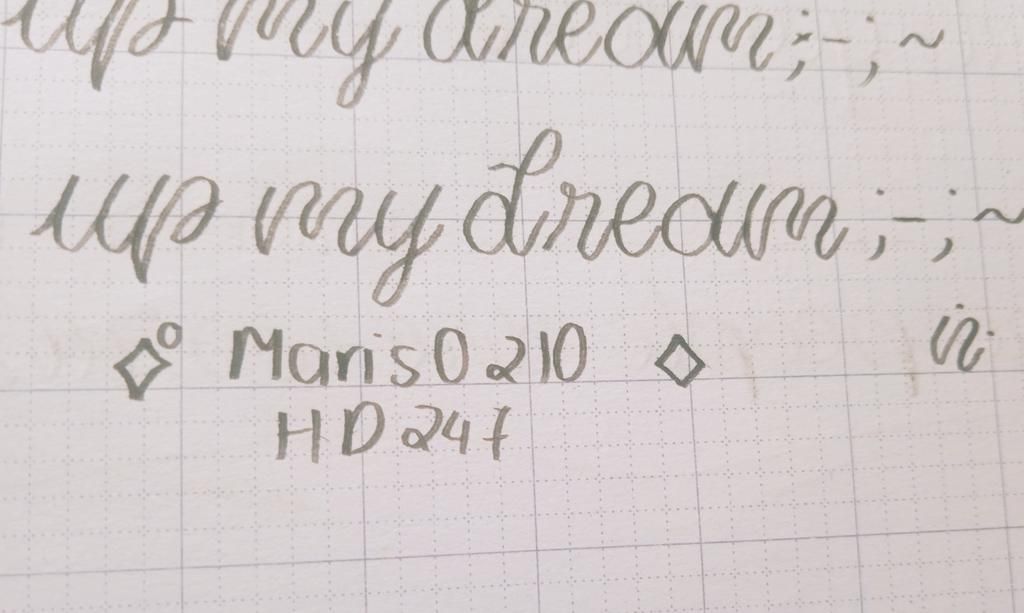 up my dream;-;~
up my dream;-;~
Maris0210 in
HD24f